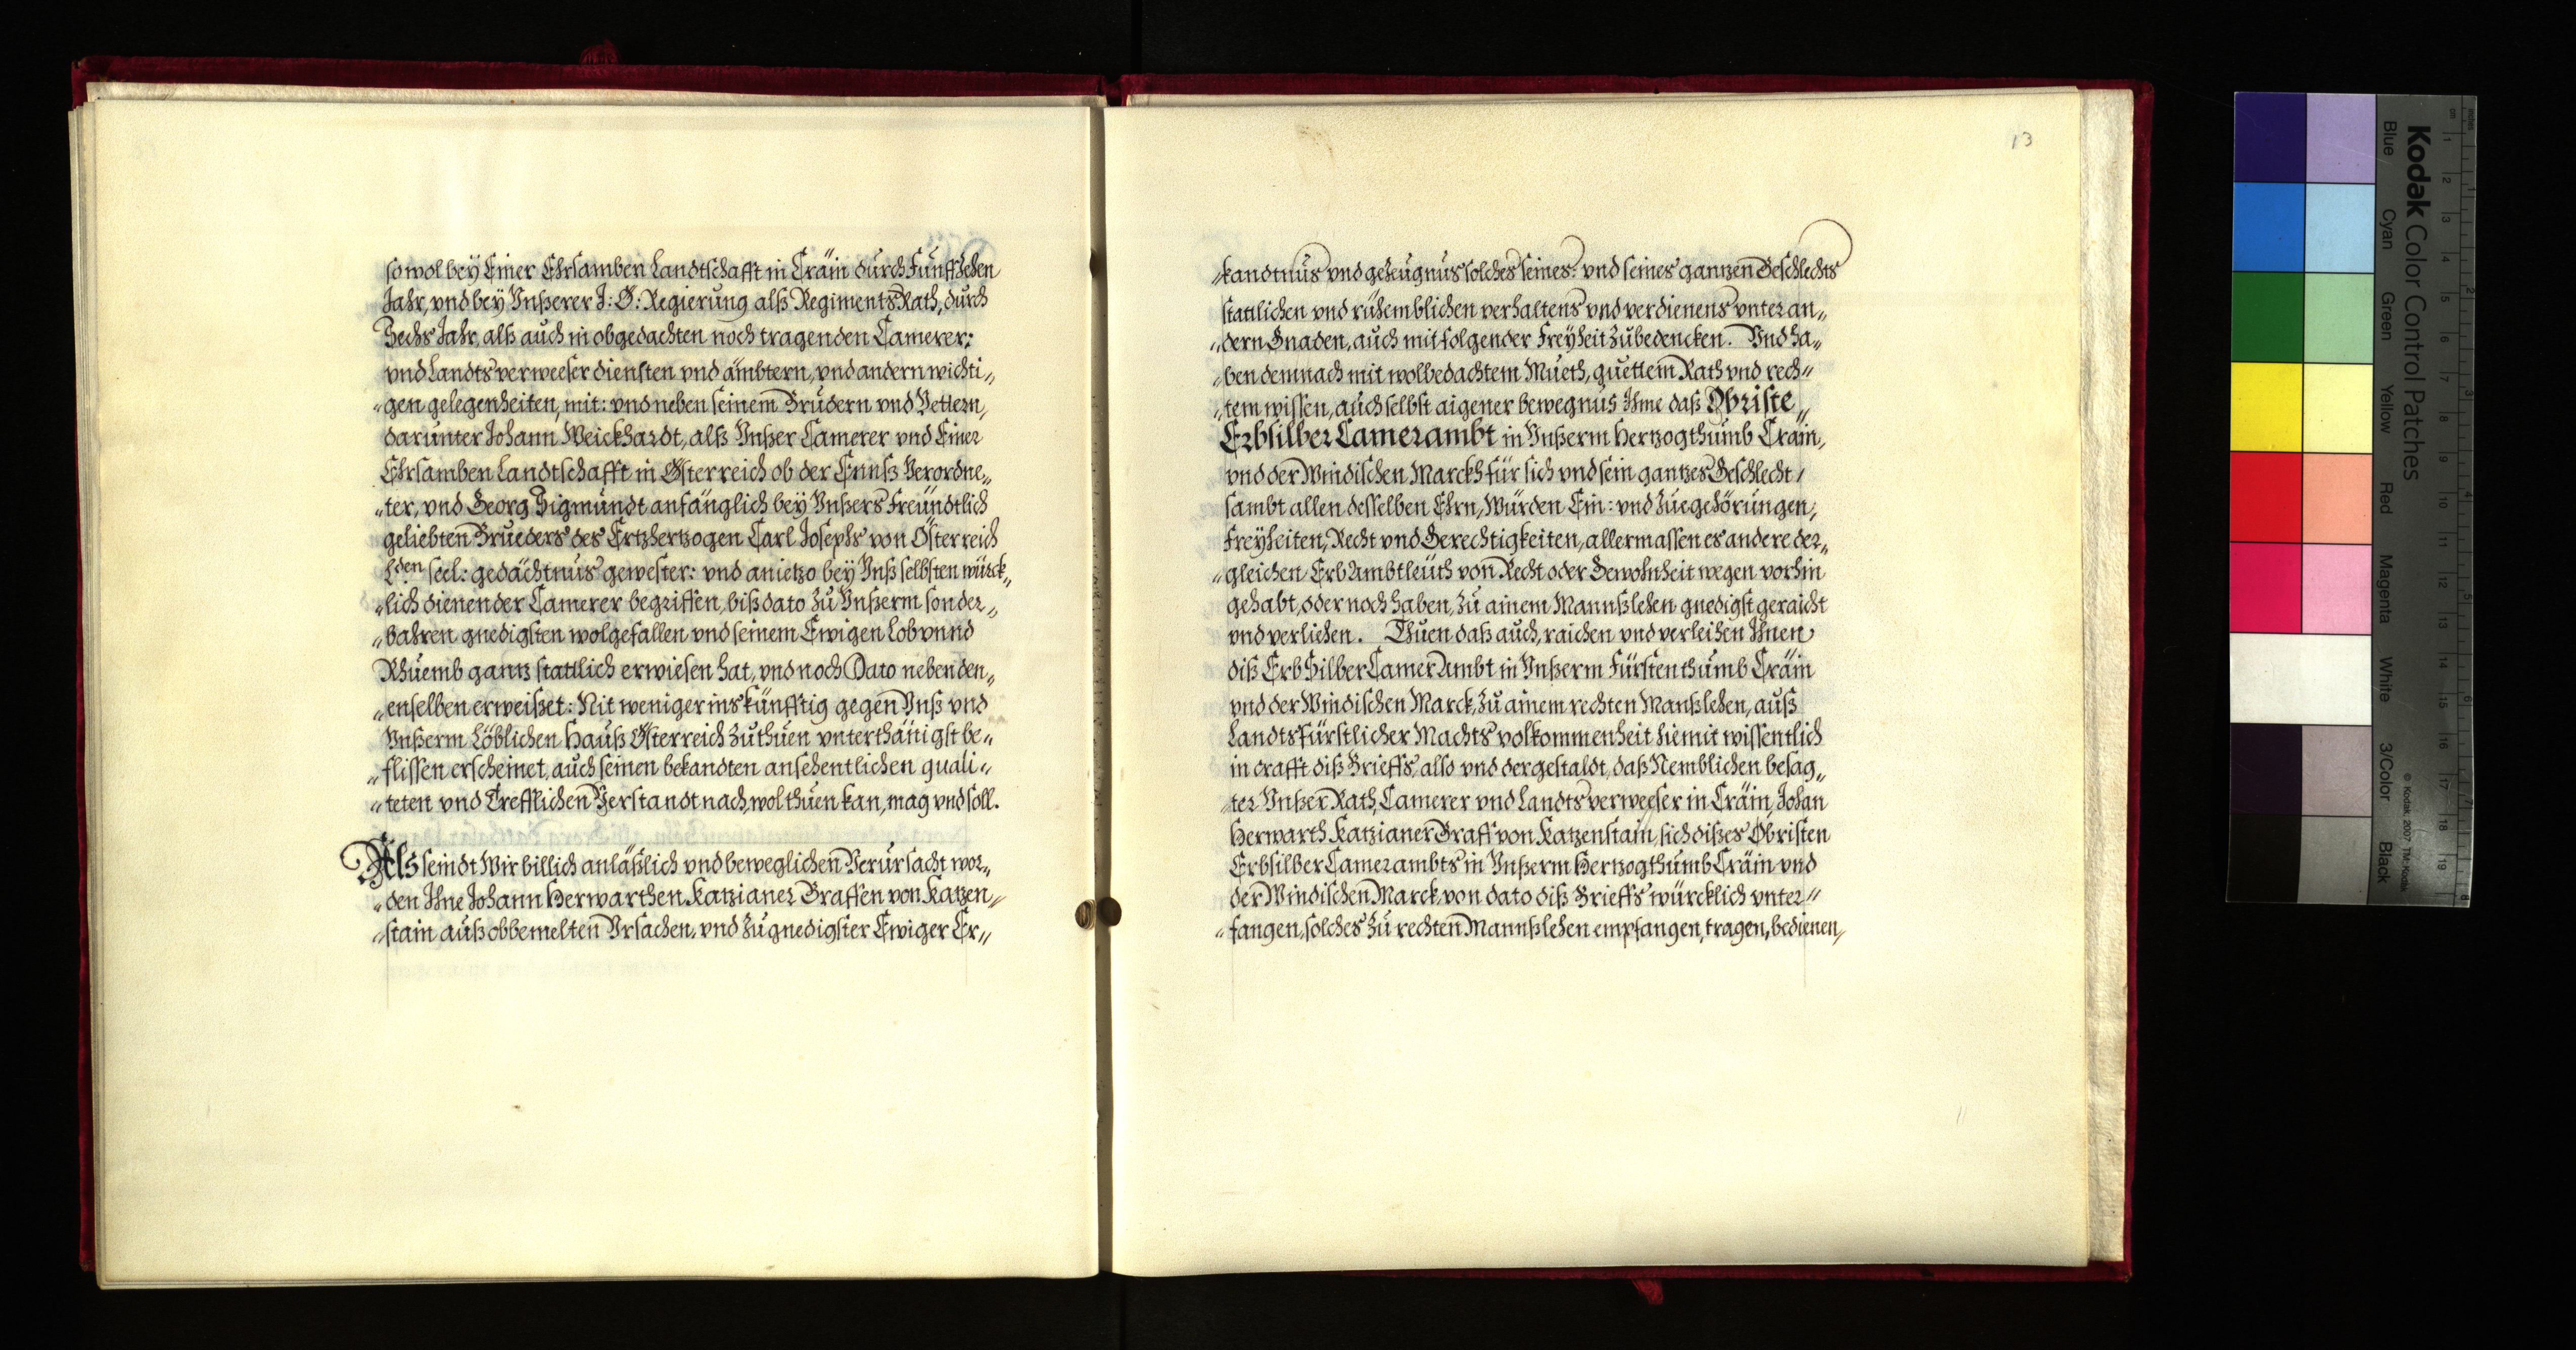 so wol bey Einer Ehrsamben Landtschafft in Cräin durch Fünffzehen
Jahr, vnd bey Vnßerer J: Ö: Regierung alß Regiments Rath, durch
Sechs Jahr, alß auch in obgedachten noch tragenden Camerer:
vnd Landtsverweeser diensten vnd ämbtern, vnd andern wichti„
„gen gelegenheiten, mit: vnd neben seinem Brüdern vnd Vettern,
darunter Johann Weickhardt, alß Vnßer Camerer vnd Einer
Ehrsamben Landtschafft in Österreich ob der Ennß Verordne„
„ter, vnd Georg Sigmundt anfänglich bey Vnßers Freündtlich
geliebten Brueders des Ertzhertzogen Carl Josephs von Österreich
Lden seel: gedächtnüs gewester: vnd anietzo bey Vnß selbsten würck„
„lich dienender Camerer begriffen, biß dato zu Vnßerm sonder„
„bahren gnedigsten wolgefallen vnd seinem Ewigen Lob vnnd
Rhüemb gantz stattlich erwiesen hat, vnd noch Dato neben den„
„enselben erweißet: Nit weniger ins künfftig gegen Vnß vnd
Vnßerm Löblichen Hauß Österreich zuthuen vnterthänigst be„
„flissen erscheinet, auch seinen bekandten ansehentlichen quali„
„teten vnd Trefflichen Verstandt nach, wol thuen kan, mag vnd soll.
Als seindt Wir billich anläßlich vnd beweglichen Verursacht wor„
„den Ihne Johann Herwarthen Katzianer Graffen von Katzen„
„stain auß obbemelten Vrsachen, vnd zu gnedigster Ewiger Er„
13
„kandtnüs vnd gezeugnüs solches seines: vnd seines gantzen Geschlechts
stattlichen vnd rühemblichen verhaltens vnd verdienens vnter an„
„dern Gnaden, auch mit folgender Freyheit zubedencken. Vnd ha„
„ben demnach mit wolbedachtem Mueth, guettem Rath vnd rech„
„tem wissen, auch selbst aigener bewegnus Ihme daß Obriste„
Erbsilber Camerambt in Vnßerm Hertzogthumb Crain,
vnd der Windischen Marckh für sich vnd sein gantzes Geschlecht,
sambt allen desselben Ehrn, Würden Ein: vnd Zuegehörungen,
Freyheiten, Recht vnd Gerechtigkeiten, allermassen es andere der„
„gleichen Erb Ambtleüth von Recht oder Gewohnheit wegen vorhin
gehabt, oder noch haben, zu ainem Mannßlehen gnedigst geraicht
vnd verliehen. Thuen daß auch, raichen vnd verleihen Ihnen
diß Erb Silber Camer Ambt in Vnßerm Fürstenthumb Cräin
vnd der Windischen Marck, zu ainem rechten Manßlehen, auß
Landtsfürstlicher Machts volkommenheit hiemit wissentlich
in crafft diß Brieffs, also vnd dergestaldt, daß Nemblichen besag„
„ter Vnßer Rath, Camerer vnd Landtsverweeser in Cräin, Johan
Herwarth Katzianer Graff von Katzenstain, sich dißes Obristen
Erbsilber Camerambts in Vnßerm Hertzogthumb Cräin vnd
der Windischen Marck, von dato diß Brieffs würcklich vnter„
„fangen, solches zu rechten Mannßlehen empfangen, tragen, bedienen,
Kodak Color Control Patches
© Kodak, 2007 TM: Kodak
Blue
Cyan
Green
Yellow
Red
Magenta
White
3/Color
Black